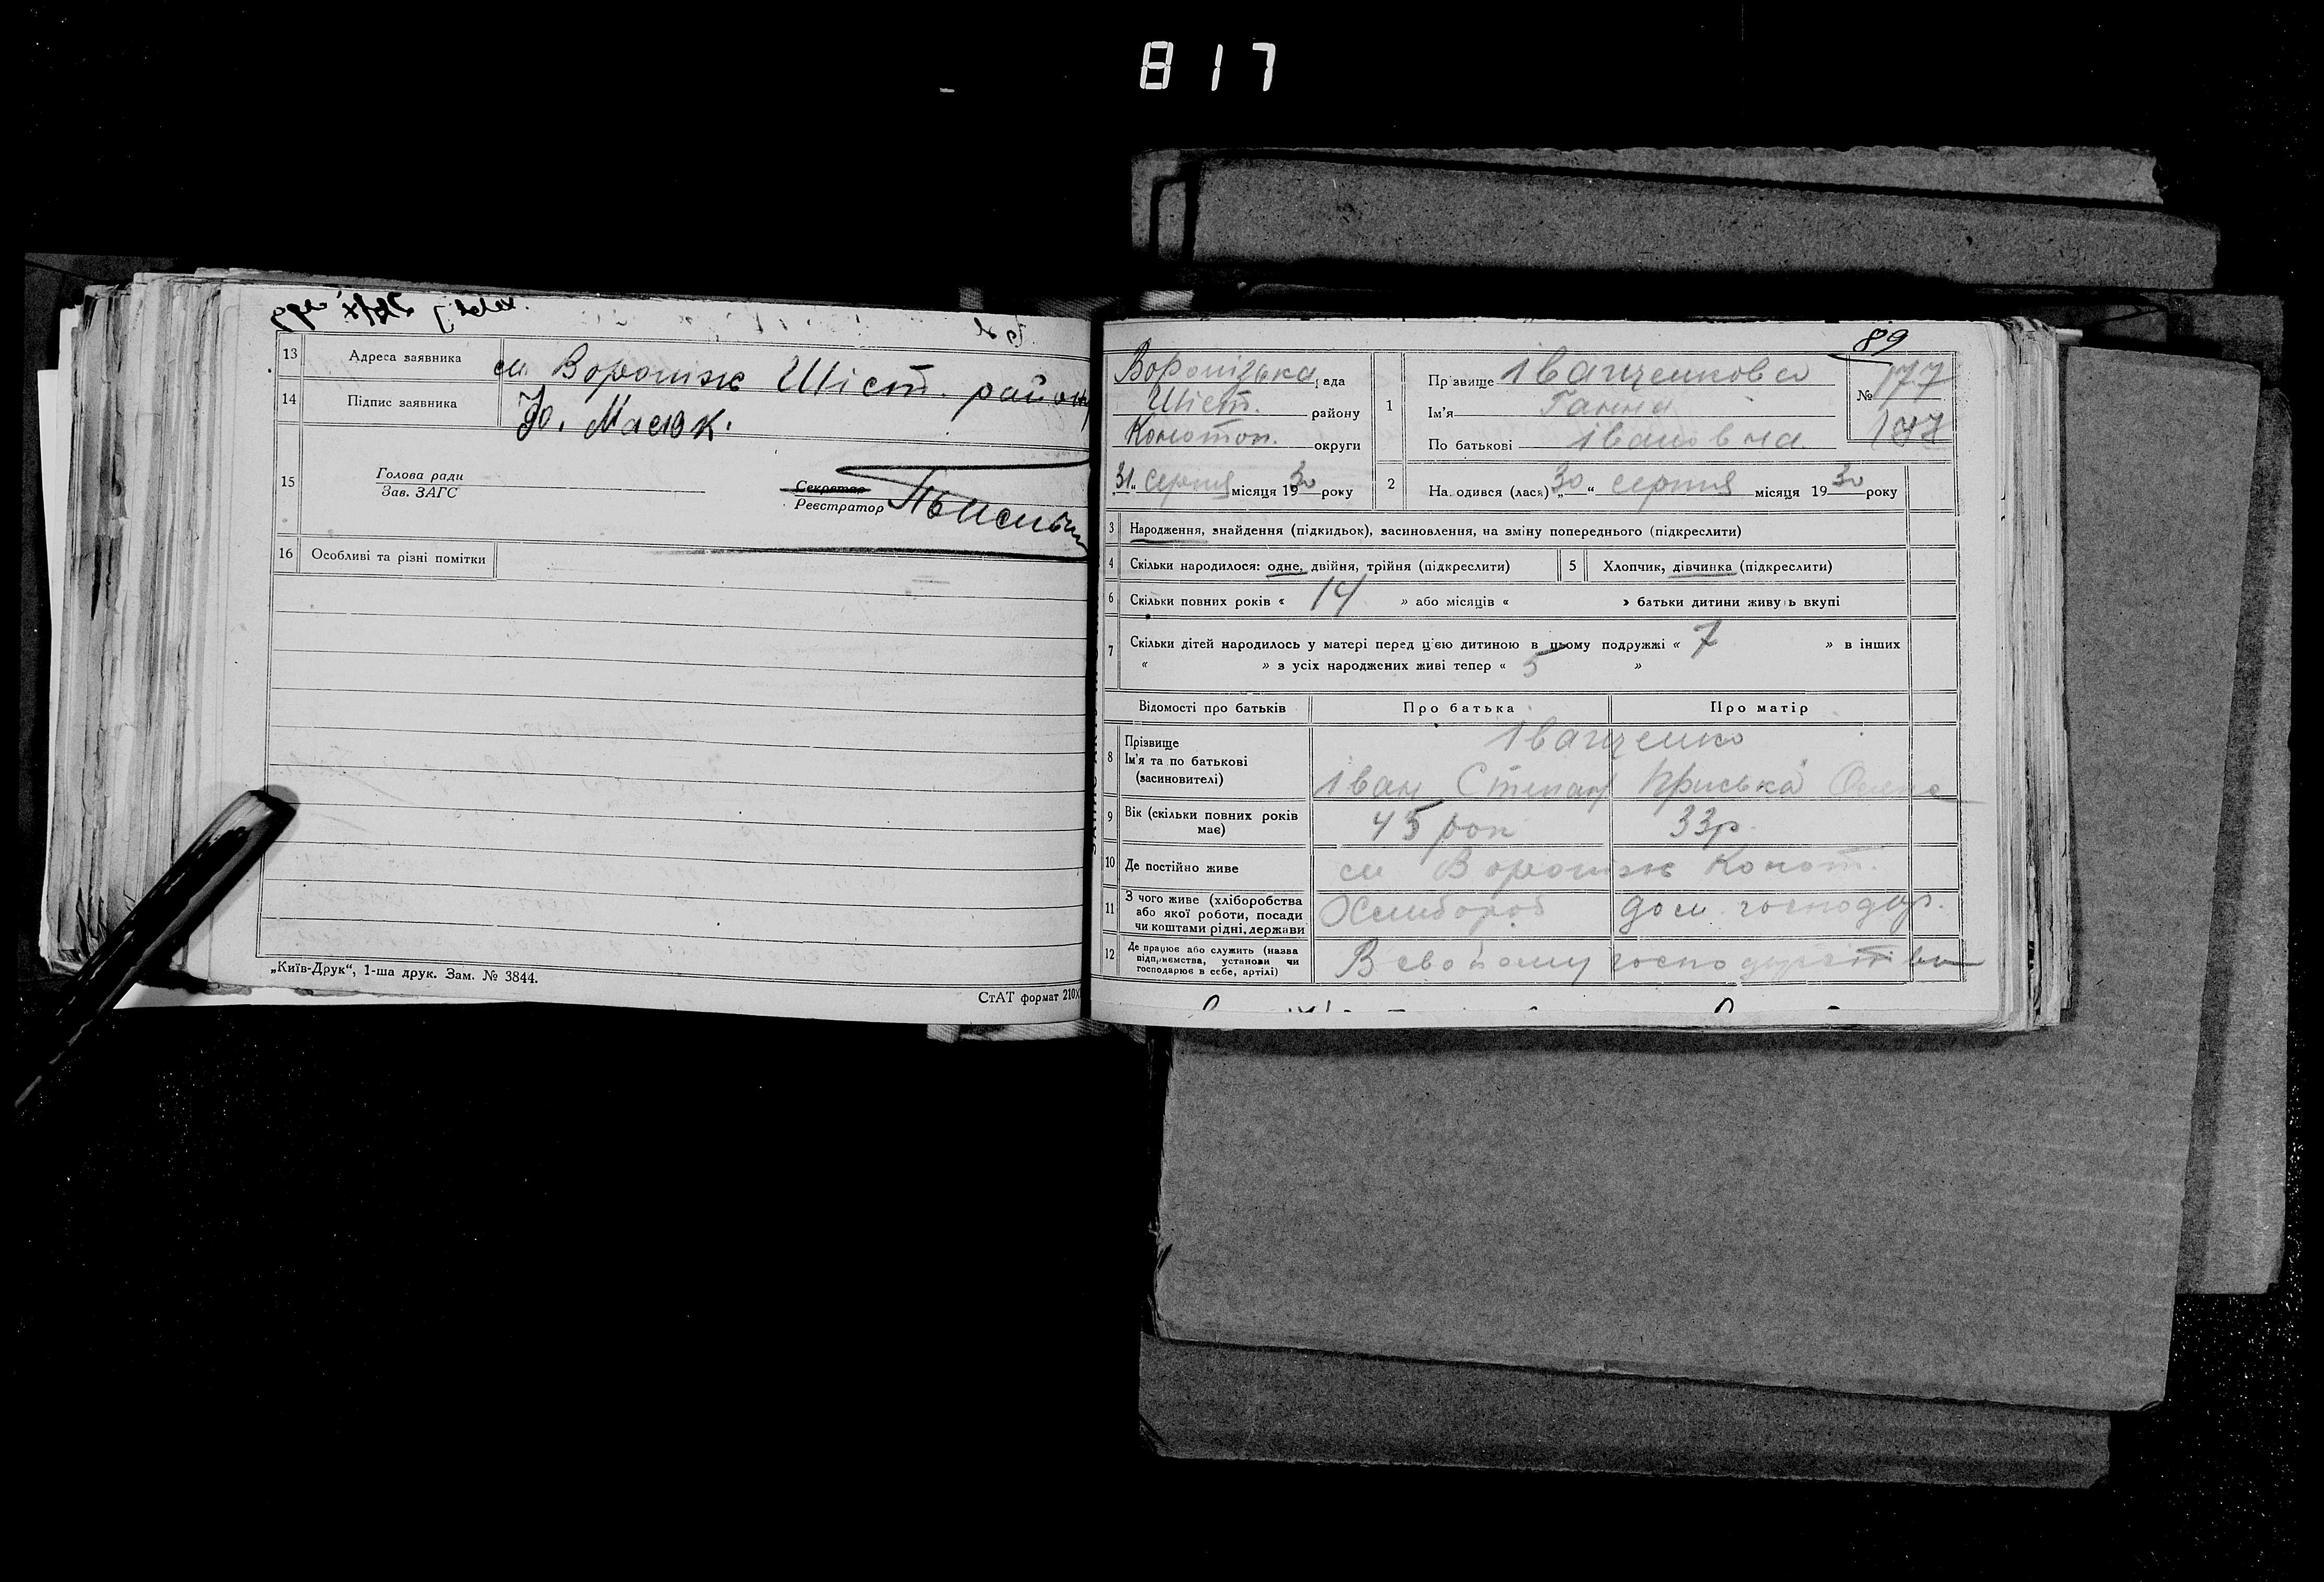 817
13 Адреса заявника см Вороніж Шіст. району
14 Підпис заявника Ю. Масюк.
15 Голова ради
Зав. ЗАГС
Секретар
Реєстратор
16 Особливі та різні помітки
„Київ-Друк“, 1-ша друк. Зам. № 3844.
СтАТ формат 210X
89
Воронізька рада
Шіст. району
Конотоп. округи
31 серпня місяця 1930 року
1 Прізвище Іванченкова
Ім'я Ганна
По батькові Івановна
№ 177
177
2 Народився (лася) „30“ серпня місяця 1930 року
3 Народження, знайдення (підкидьок), засиновлення, на зміну попереднього (підкреслити)
4 Скільки народилося: одне, двійня, трійня (підкреслити)
5 Хлопчик, дівчинка (підкреслити)
6 Скільки повних років « 14 » або місяців « » батьки дитини живуть вкупі
7 Скільки дітей народилось у матері перед ц'єю дитиною в цьому подружжі « 7 » в інших
« » з усіх народжених живі тепер « 5 »
Відомості про батьків Про батька Про матір
8 Прізвище
Ім'я та по батькові
(засиновителі)
Іванченко
Іван Степан Приська
9 Вік (скільки повних років
має)
45 рок 33р.
10 Де постійно живе см Вороніж Конот.
11 З чого живе (хліборобства
або якої роботи, посади
чи коштами рідні, держави
Хлибороб дом. господар.
12 Де працює або служить (назва
підприємства, установи чи
господарює в себе, артілі)
В свойому господарстві